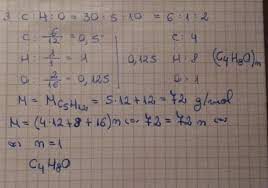 3. C : H : O = 30 : 5 : 10 = 6 : 1 : 2
C : 6/12 = 0,5 C : 4
H : 1/1 = 1 0,125 H : 8 (C4H8O)n
O : 2/16 = 0,125 O : 1
M = M C5H12 = 5·12+12 = 72 g/mol
M = (4·12+8+16)n ⇔ 72 = 72n ⇔
⇔ n = 1
C4H8O